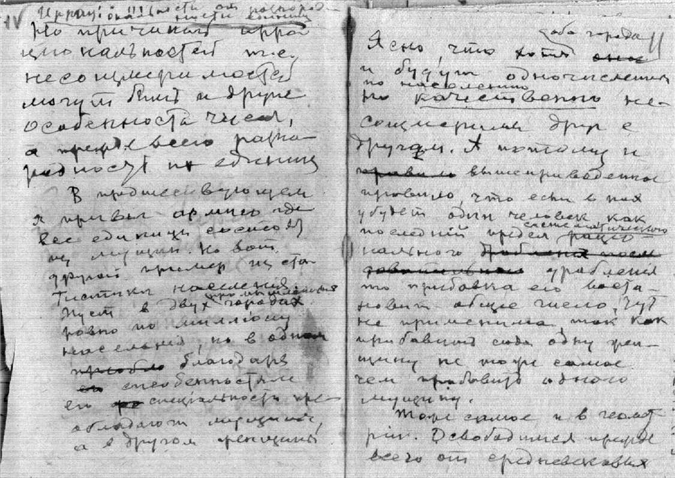 IV
Но причиной ирра
циональностей т.е.
несоизмеримостей
могут быть и другие
особенности чисел,
а прежде всего разно-
родность их единиц
В предшествующем
я привел армию где
все единицы
из мужчин. Но вот
другой пример из ста-
тистики населения
Пусть в двух городах
промышленных
ровно по миллиону
населения, но в одном
благодаря
особенностям
его специальности пре-
обладают мужчины,
а в другом женщины
оба города
Ясно, что хотя
и будут одночисленны
по населению
но качественно не-
соизмеримы друг с
другом. А потому и
вышеприведенное
правило, что если в них
убудет один человек как
последний предел
систематического
дробления
то прибавка его воста-
новит общее число, тут
не применима, так как
прибавить сюда одну жен-
щину не то же самое
чем прибавить одного
мужчину.
Тоже самое и в геомет
рии. Освободимся прежде
всего от средневековых